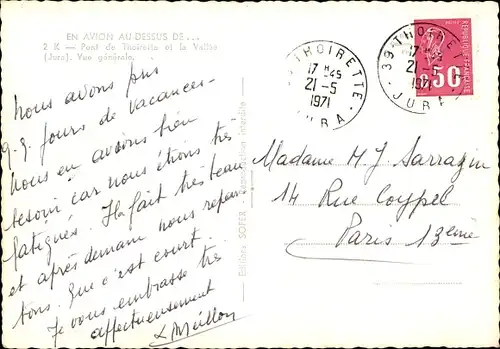 EN AVION AU-DESSUS DE...
2 K — Pont de Thoirette et la Vallée
(Jura). Vue générale.
Nous avons pris
q.q. jours de vacances -
nous en avions bien
besoin car nous étions très
fatigués. Il fait très beau
et après demain nous repar
tons. Que c'est court.
Je vous embrasse très
affectueusement
Editions SOFER Reproduction interdite
39 THOIRETTE
17 H 45
21-5
1971
JURA
39 THOIRETTE
17 H 45
21-5
1971
JURA
REPUBLIQUE FRANÇAISE
0,50
Madame M. J. Sarrazin
14 Rue Coypel
Paris 13eme